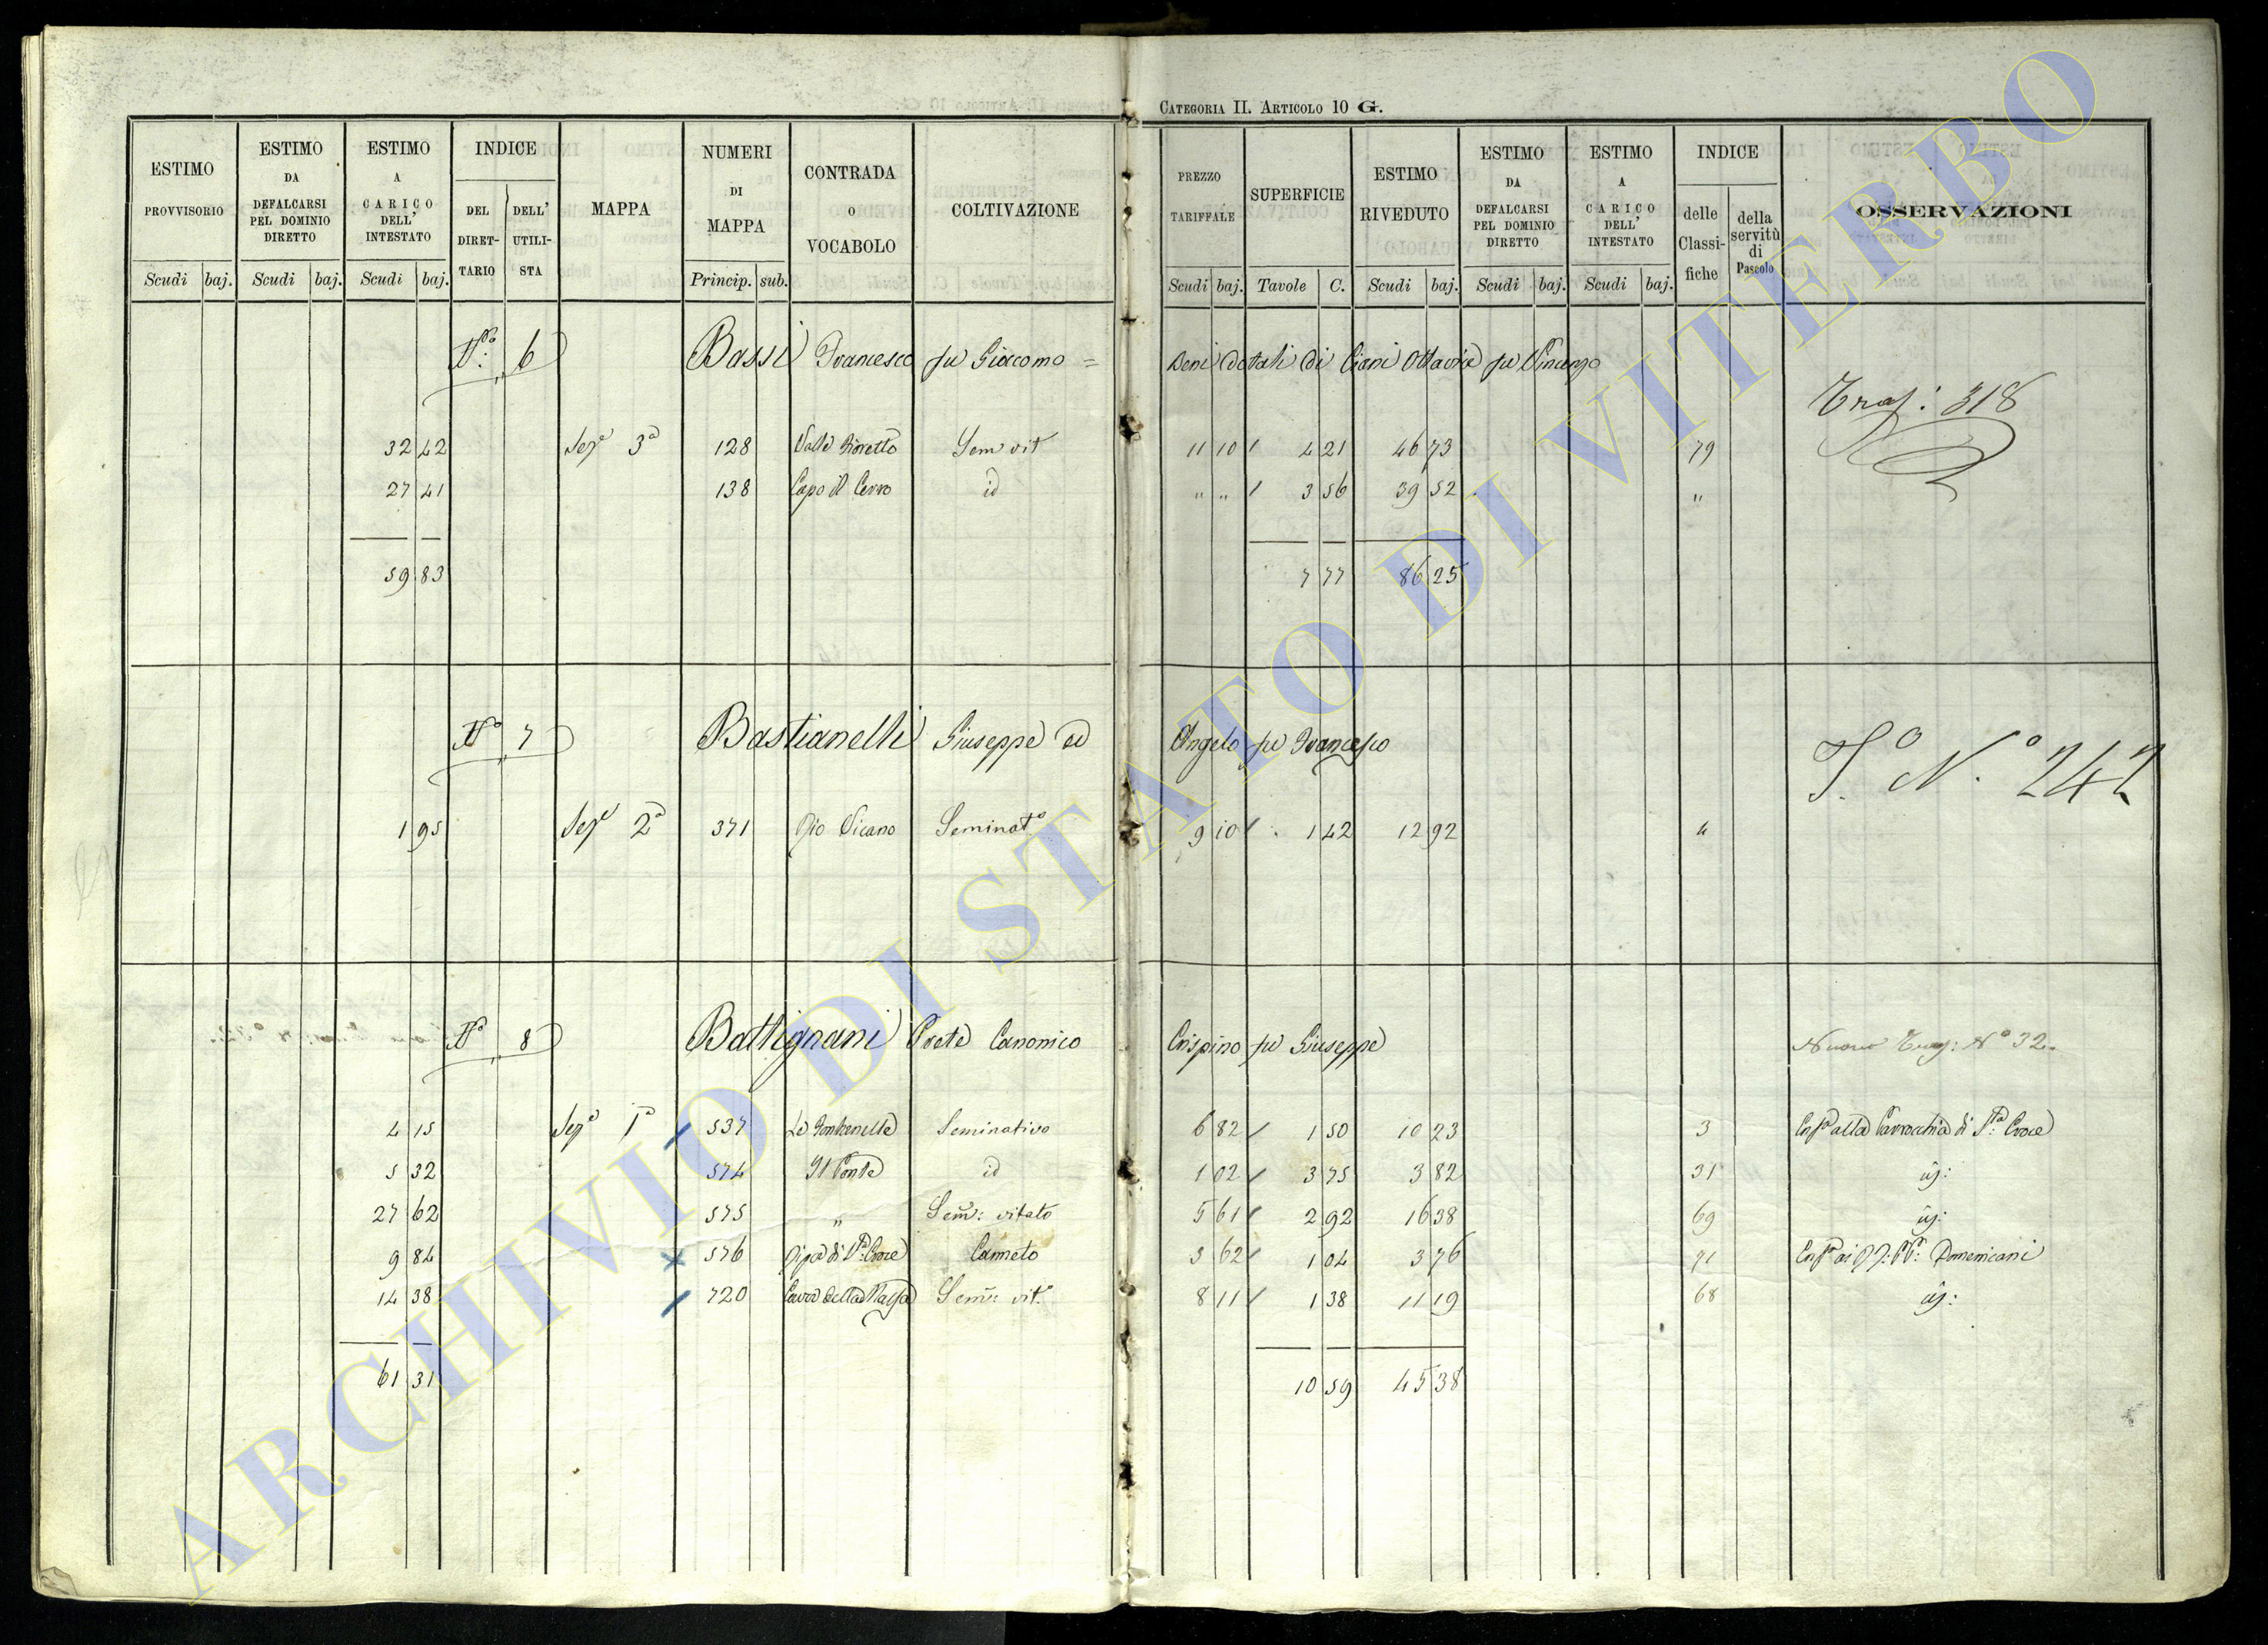 CATEGORIA II. ARTICOLO 10 G.
ESTIMO PROVVISORIO Scudi baj.
ESTIMO DA DEFALCARSI PEL DOMINIO DIRETTO Scudi baj.
ESTIMO A CARICO DELL' INTESTATO Scudi baj.
INDICE DEL DIRET-TARIO DELL' UTILI-STA
MAPPA
NUMERI DI MAPPA Princip. sub.
CONTRADA O VOCABOLO
COLTIVAZIONE
PREZZO TARIFFALE Scudi baj.
SUPERFICIE Tavole C.
ESTIMO RIVEDUTO Scudi baj.
ESTIMO DA DEFALCARSI PEL DOMINIO DIRETTO Scudi baj.
ESTIMO A CARICO DELL' INTESTATO Scudi baj.
INDICE delle Classi-fiche della servitù di Pascolo
OSSERVAZIONI
N.o 6 Bassi Francesco fu Giacomo = Beni dotali di Ciani Ottavia fu Vincenzo
Trasp: 318
32 42 Sez.e 3a 128 Valle Sem vit 11 10 4 21 46 73 79
27 41 138 Capo il Cerro id " " 3 56 39 52 "
59 83 7 77 86 25
N.o 7 Bastianelli Giuseppe ed Angelo fu Francesco
T.o N.o 242
1 95 Sez.e 2a 371 Rio Vicano Seminat.o 9 10 1 42 12 92 4
N.o 8 Battignani Prete Canonico Crispino fu Giuseppe Nuovo Trasp: N.o 32.
4 15 Sez.e 1a 537 Le Fontanelle Seminativo 6 82 1 50 10 23 3 alla Parrocchia di S.ta Croce
5 32 574 Il Ponte id 1 02 3 75 3 82 31
27 62 575 " Sem: vitato 5 61 2 92 16 38 69
9 84 576 Ripa di S.ta Croce Canneto 3 62 1 04 3 76 71 ai RR: PP: Domenicani
14 38 720 della Sem: vit. 8 11 1 38 11 19 68
61 31 10 59 45 38
ARCHIVIO DI STATO DI VITERBO